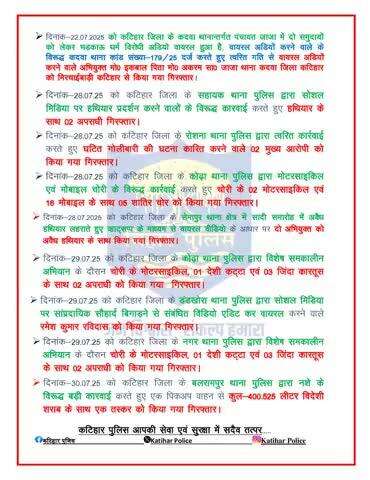 दिनांक–22.07.2025 को कटिहार जिला के कदवा थानान्तर्गत पंचायत जाजा में दो समुदायों
को लेकर भड़काऊ धर्म विरोधी अडियो वायरल हुआ है, वायरल अडियों करने वाले के
विरूद्ध कदवा थाना कांड संख्या–179/25 दर्ज करते हुए त्वरित गति से वायरल अडियों
करने वाले अभियुक्त मो० इकबाल पिता मो० अकरम सा० जाजा थाना कदवा जिला कटिहार
को मिरचाईबाड़ी कटिहार से किया गया गिरफ्तार।
दिनांक–28.07.25 को कटिहार जिला के सहायक थाना पुलिस द्वारा सोशल
मिडिया पर हथियार प्रदर्शन करने वालों के विरूद्ध कारवाई करते हुए हथियार के
साथ 02 अपराधी गिरफ्तार।
दिनांक–28.07.25 को कटिहार जिला के रोशना थाना पुलिस द्वारा त्वरित कार्रवाई
करते हुए घटित गोलीबारी की घटना कारित करने वाले 02 मुख्य आरोपी को
किया गया गिरफ्तार।
दिनांक–28.07.25 को कटिहार जिला के कोढ़ा थाना पुलिस द्वारा मोटरसाइकिल
एवं मोबाइल चोरी के विरूद्ध कार्रवाई करते हुए चोरी के 02 मोटरसाइकिल एवं
16 मोबाइल के साथ 05 शातिर चोर को किया गया गिरफ्तार।
दिनांक–28.07.2025 को कटिहार जिला के सेमापुर थाना क्षेत्र में सादी समारोह में अवैध
हथियार लहराते हुए व्हाट्सएप के माध्यम से वायरल वीडियो के आधार पर दो अभियुक्त को
अवैध हथियार के साथ किया गया गिरफ्तार।
दिनांक–29.07.25 को कटिहार जिला के कोढ़ा थाना पुलिस द्वारा विशेष समकालीन
अभियान के दौरान चोरी के मोटरसाइकिल, 01 देशी कट्टा एवं 03 जिंदा कारतूस
के साथ 02 अपराधी को किया गया गिरफ्तार।
दिनांक–29.07.25 को कटिहार जिला के डंडखोरा थाना पुलिस द्वारा सोशल मिडिया
पर सांप्रदायिक सौहार्द बिगाड़ने से संबंधित विडियो एडिट कर वायरल करने वाले
रमेश कुमार रविदास को किया गया गिरफ्तार।
दिनांक–29.07.25 को कटिहार जिला के नगर थाना पुलिस द्वारा विशेष समकालीन
अभियान के दौरान चोरी के मोटरसाइकिल, 01 देशी कट्टा एवं 03 जिंदा कारतूस
के साथ 02 अपराधी को किया गया गिरफ्तार।
दिनांक–30.07.25 को कटिहार जिला के बलरामपुर थाना पुलिस द्वारा नशे के
विरूद्ध बड़ी कारवाई करते हुए एक पिकअप वाहन से कुल–400.525 लीटर विदेशी
शराब के साथ एक तस्कर को किया गया गिरफ्तार।
कटिहार पुलिस आपकी सेवा एवं सुरक्षा में सदैव तत्पर.....
कटिहार पुलिस Katihar Police Katihar Police